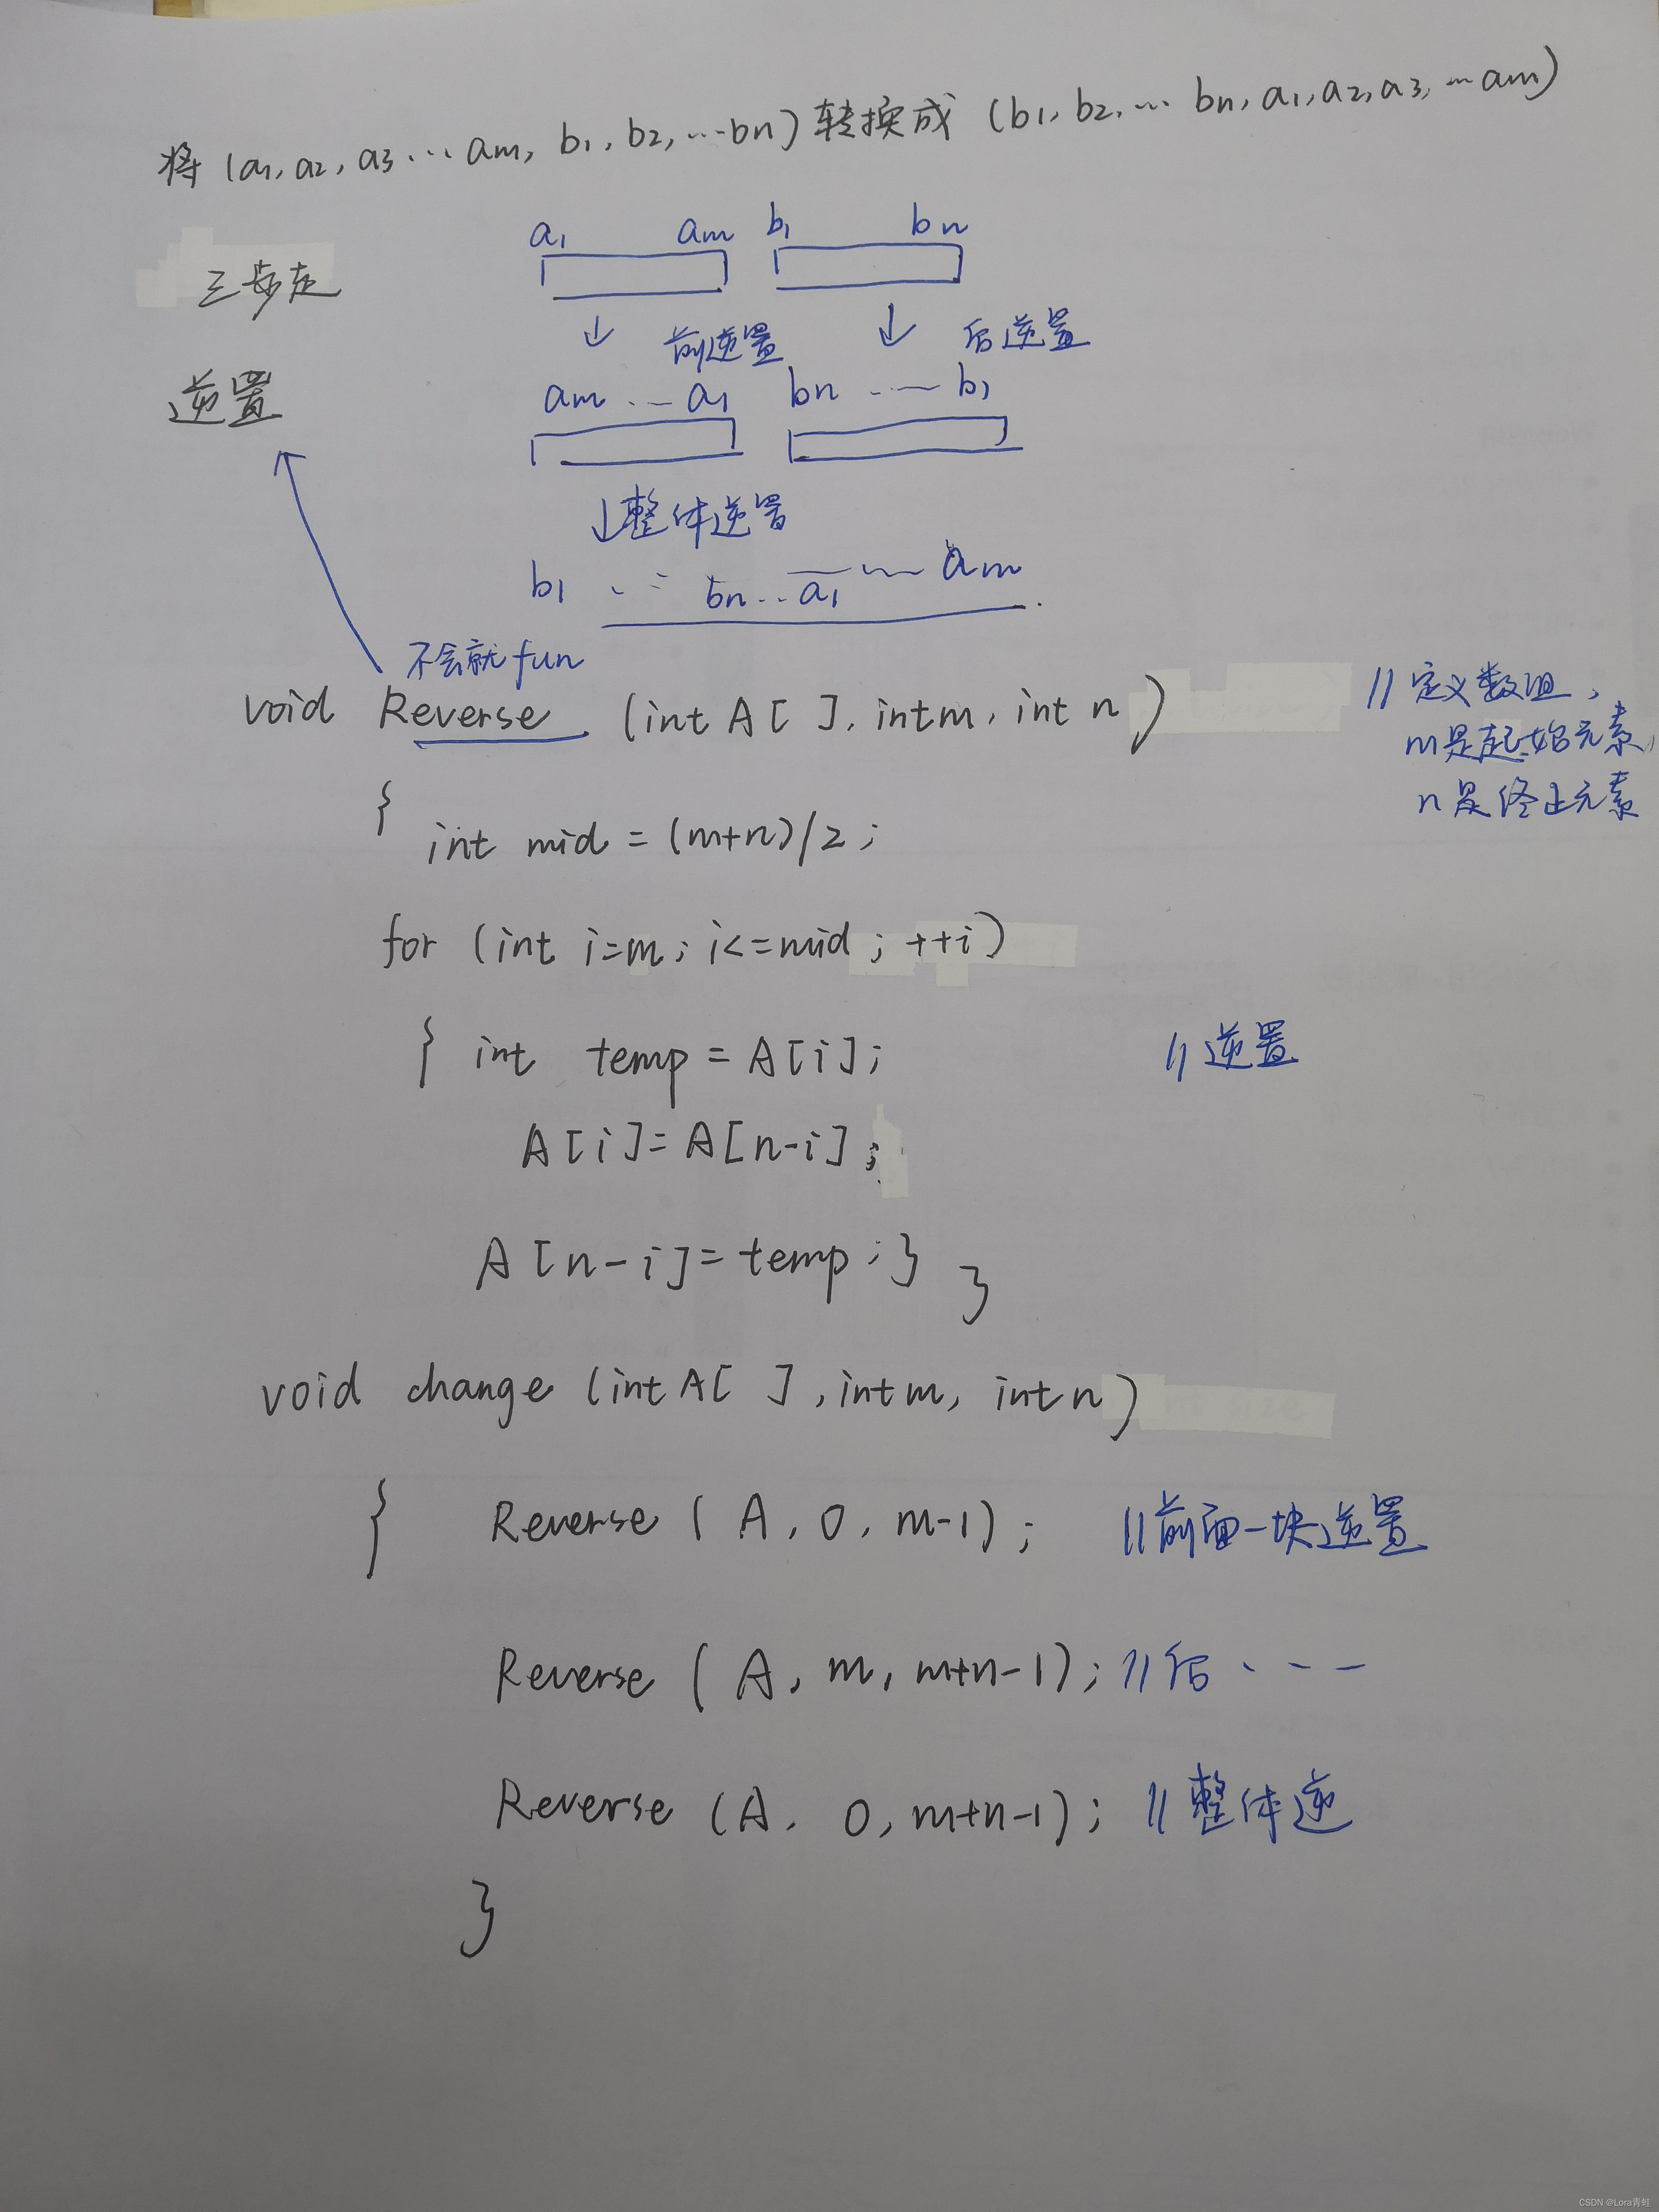 将(a1,a2,a3...am,b1,b2,...bn)转换成(b1,b2,...bn,a1,a2,a3,...am)
a1 am b1 bn
三步走
↓ 前逆置 ↓ 后逆置
逆置
am...a1 bn...b1
↓整体逆置
b1...bn...a1...am
不会就fun
void Reverse (int A[ ], int m, int n)
//定义数组,
m是起始元素,
n是终止元素
{ int mid = (m+n)/2;
for (int i=m; i<=mid; ++i)
{ int temp = A[i]; //逆置
A[i]=A[n-i];
A[n-i]=temp;} }
void change (int A[ ], int m, int n)
{ Reverse ( A, 0, m-1); //前面一块逆置
Reverse ( A, m, m+n-1); //后...
Reverse (A, 0, m+n-1); //整体逆
}
CSDN @Lora青蛙